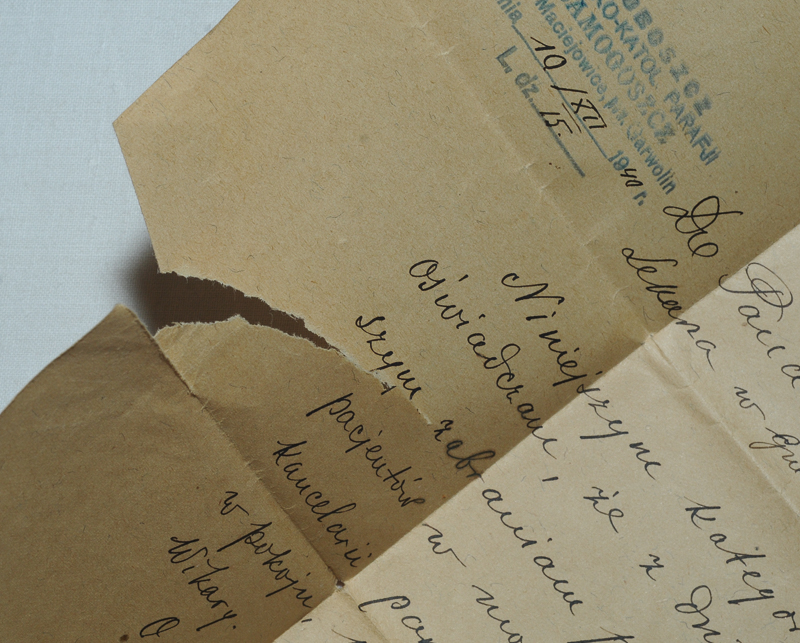 PROBOSZCZ
KO-KATOL. PARAFJI
SAMOGOSZCZ
Maciejowice, k. Garwolin
nia 10/XII 1940 r.
L. dz. 15.
Do Pana
Lekarza w
Niniejszym kategor
oświadczam, że z dn
szym zabraniam
pacjentów w mo
kancelarii
w pokoju,
Wikary.